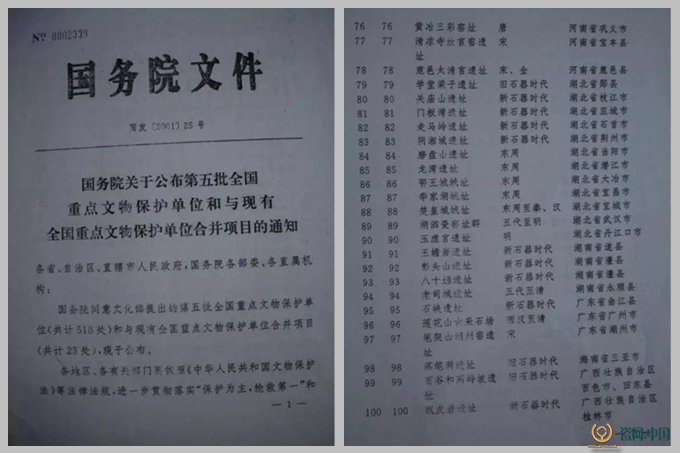 № 0002339
国务院文件
国发〔2001〕25号
国务院关于公布第五批全国
重点文物保护单位和与现有
全国重点文物保护单位合并项目的通知
各省、自治区、直辖市人民政府，国务院各部委、各直属机
构：
国务院同意文化部提出的第五批全国重点文物保护单
位(共计518处)和与现有全国重点文物保护单位合并项目
(共计23处)，现予公布。
各地区、各有关部门要依照《中华人民共和国文物保护
法》等法律法规，进一步贯彻落实“保护为主，抢救第一”和
— 1 —
76 76 黄冶三彩窑址 唐 河南省巩义市
77 77 清凉寺汝官窑遗 宋 河南省宝丰县
址
78 78 鹿邑太清宫遗址 宋、金 河南省鹿邑县
79 79 学堂梁子遗址 旧石器时代 湖北省郧县
80 80 关庙山遗址 新石器时代 湖北省枝江市
81 81 门板湾遗址 新石器时代 湖北省应城市
82 82 走马岭遗址 新石器时代 湖北省石首市
83 83 阴湘城遗址 新石器时代 湖北省荆州市
84 84 磨盘山遗址 东周 湖北省当阳市
85 85 龙湾遗址 东周 湖北省潜江市
86 86 鄂王城城址 东周 湖北省大冶市
87 87 季家湖城址 东周 湖北省宜昌市
88 88 楚皇城城址 东周至秦、汉 湖北省宜城市
89 89 湖泗瓷窑址群 五代至明 湖北省武汉市
90 90 玉虚宫遗址 明 湖北省丹江口市
91 91 玉蟾岩遗址 新石器时代 湖南省道县
92 92 彭头山遗址 新石器时代 湖南省澧县
93 93 八十垱遗址 新石器时代 湖南省澧县
94 94 老司城遗址 五代至清 湖南省永顺县
95 95 石峡遗址 新石器时代 广东省曲江县
96 96 莲花山古采石场 西汉至清 广东省广州市
97 97 笔架山潮州窑遗 宋 广东省潮州市
址
98 98 落笔洞遗址 旧石器时代 海南省三亚市
99 99 百谷和高岭坡遗 旧石器时代 广西壮族自治区
址 百色市、田东县
100 100 甑皮岩遗址 新石器时代 广西壮族自治区
桂林市
中国